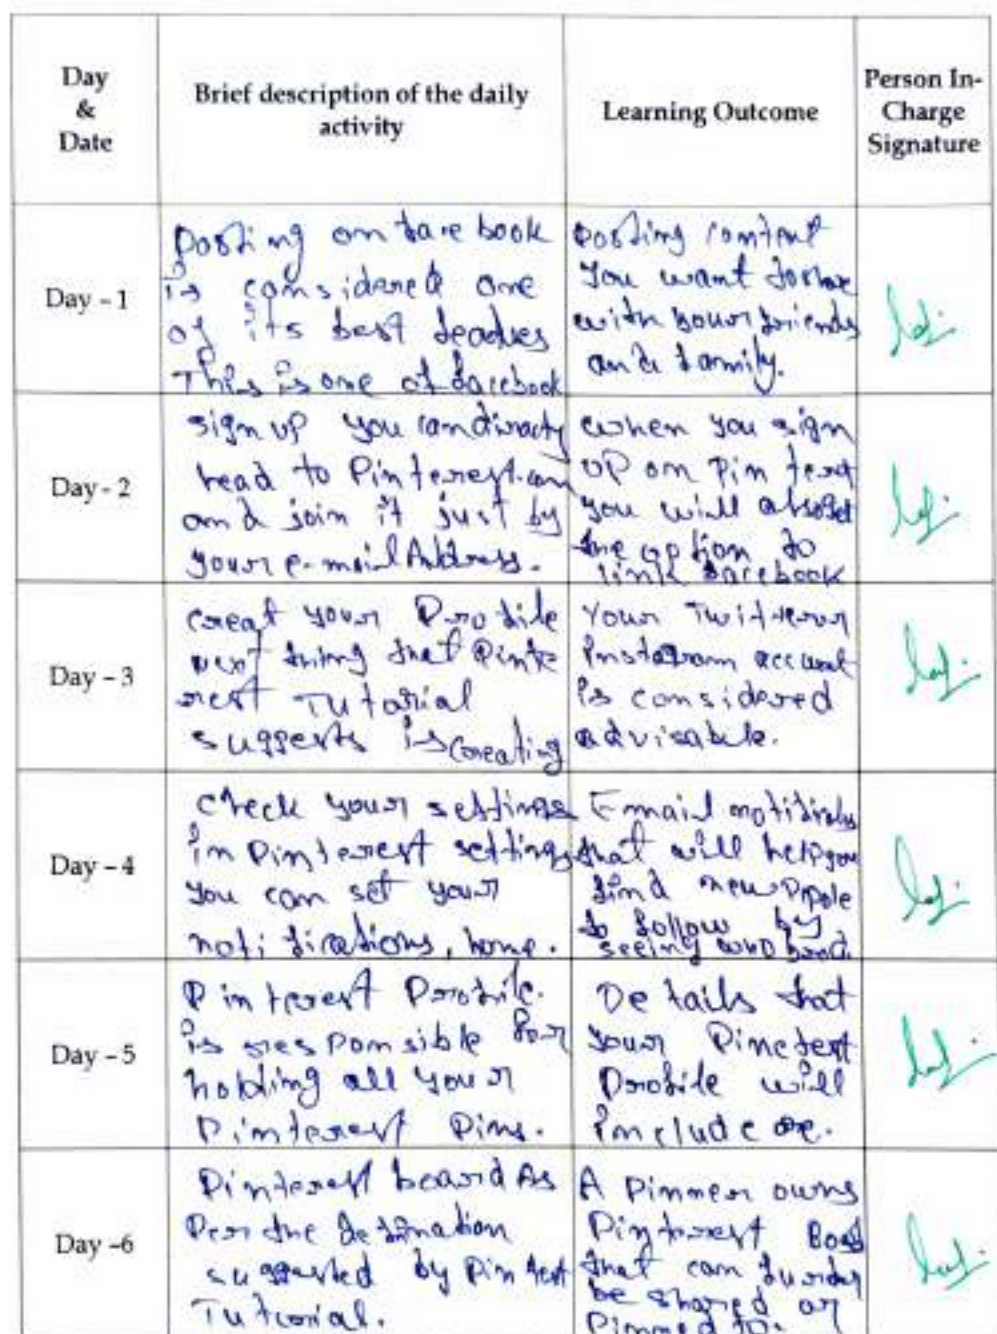 Day
&
Date
Brief description of the daily
activity
Learning Outcome
Person In-
Charge
Signature
Day - 1
Posting on facebook
is considered one
of its best
This is one of facebook
Posting content
You want
with your friends
and family.
Day - 2
sign up you can
head to Pinterest.com
and join it just by
your e-mail Address.
when you sign
up on Pin
you will
the option to
link facebook
Day - 3
creat your Profile
next thing that Pinte
rest Tutorial
suggests is creating
Your
account
is considered
Day - 4
check your settings
in Pinterest settings
you can set your
notifications, home.
Email
that will help you
find new
to follow by
seeing who
Day - 5
Pinterest Profile.
is responsible for
holding all your
Pinterest Pins.
Details that
your
Profile will
include
Day -6
Pinterest board As
Per the
suggested by
Tutorial.
A Pinner owns
Pinterest
that can
be shared or
Pinned to.